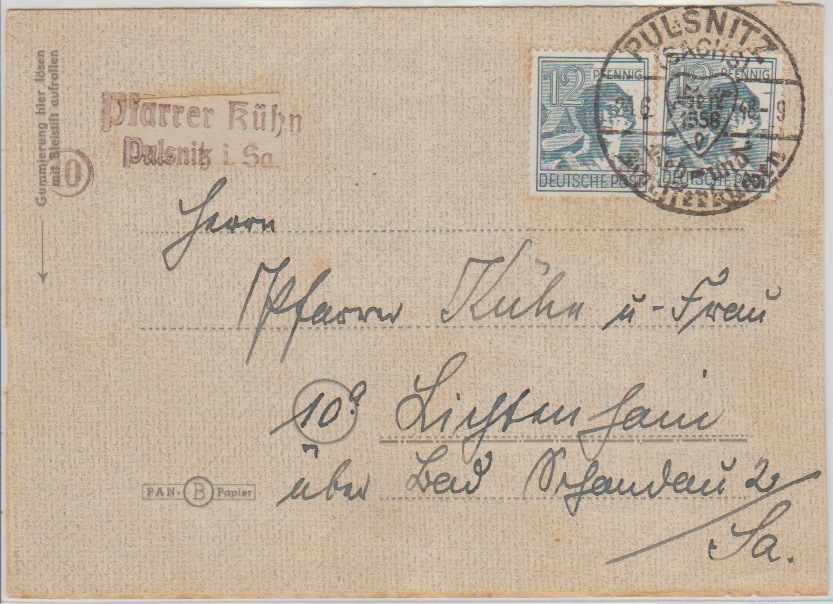 Gummierung hier lösen
mit Bleistift aufrollen
Pfarrer Kühn
Pulsnitz i. Sa
12 PFENNIG
DEUTSCHE POST
12 PFENNIG
DEUTSCHE POST
PULSNITZ
(SACHS)
Herrn
Pfarrer Kühn u. Frau
10a Lichtenhain
über Bad Schandau 2
Sa.
PAN- B Papier